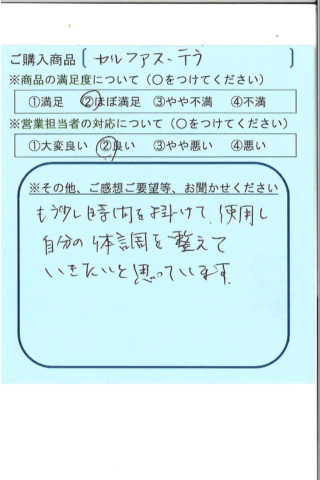 ご購入商品〔セルファス、テラ〕
※商品の満足度について（○をつけてください）
①満足 ②ほぼ満足 ③やや不満 ④不満
※営業担当者の対応について（○をつけてください）
①大変良い ②良い ③やや悪い ④悪い
※その他、ご感想ご要望等、お聞かせください
もう少し時間を掛けて、使用し
自分の体調を整えて
いきたいと思っています。